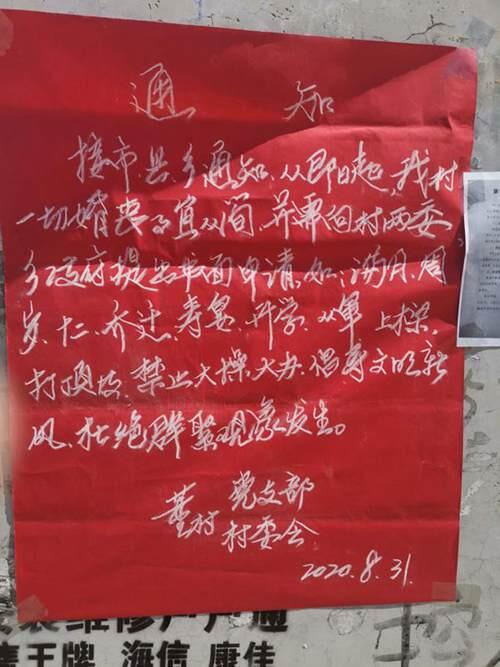 通 知
接市、县、乡通知,从即日起,我村
一切婚丧事宜从简,并事向村两委
乡政府提出书面申请,如:满月、周
岁、十二、乔迁、寿宴、升学、从军、上梁、
打顶板、禁止大操大办,倡导文明新
风,杜绝群聚现象发生。
董村 党支部
村委会
2020.8.31.
装维修户户通
集王牌 海信 康佳